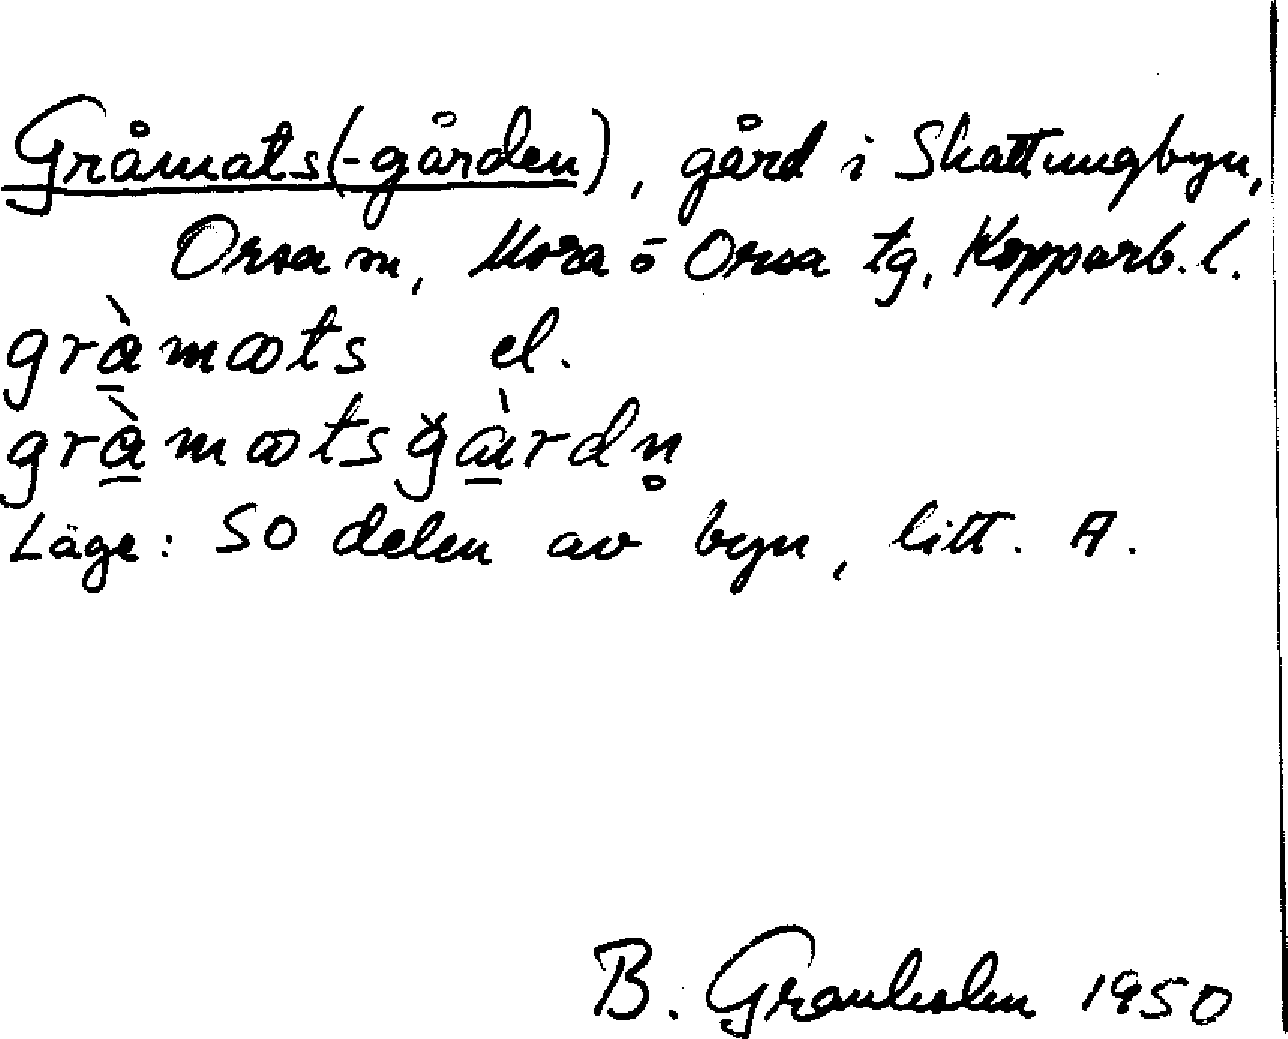 Gråmats(-gården), gård i Skattungbyn,
Orsa sn, Mora o Orsa tg, Kopparb. l.
grą̀mæts el.
grą̀mætsğæ̀rdn̥
Läge: SO delen av byn, litt. A.
B. Granholm 1950